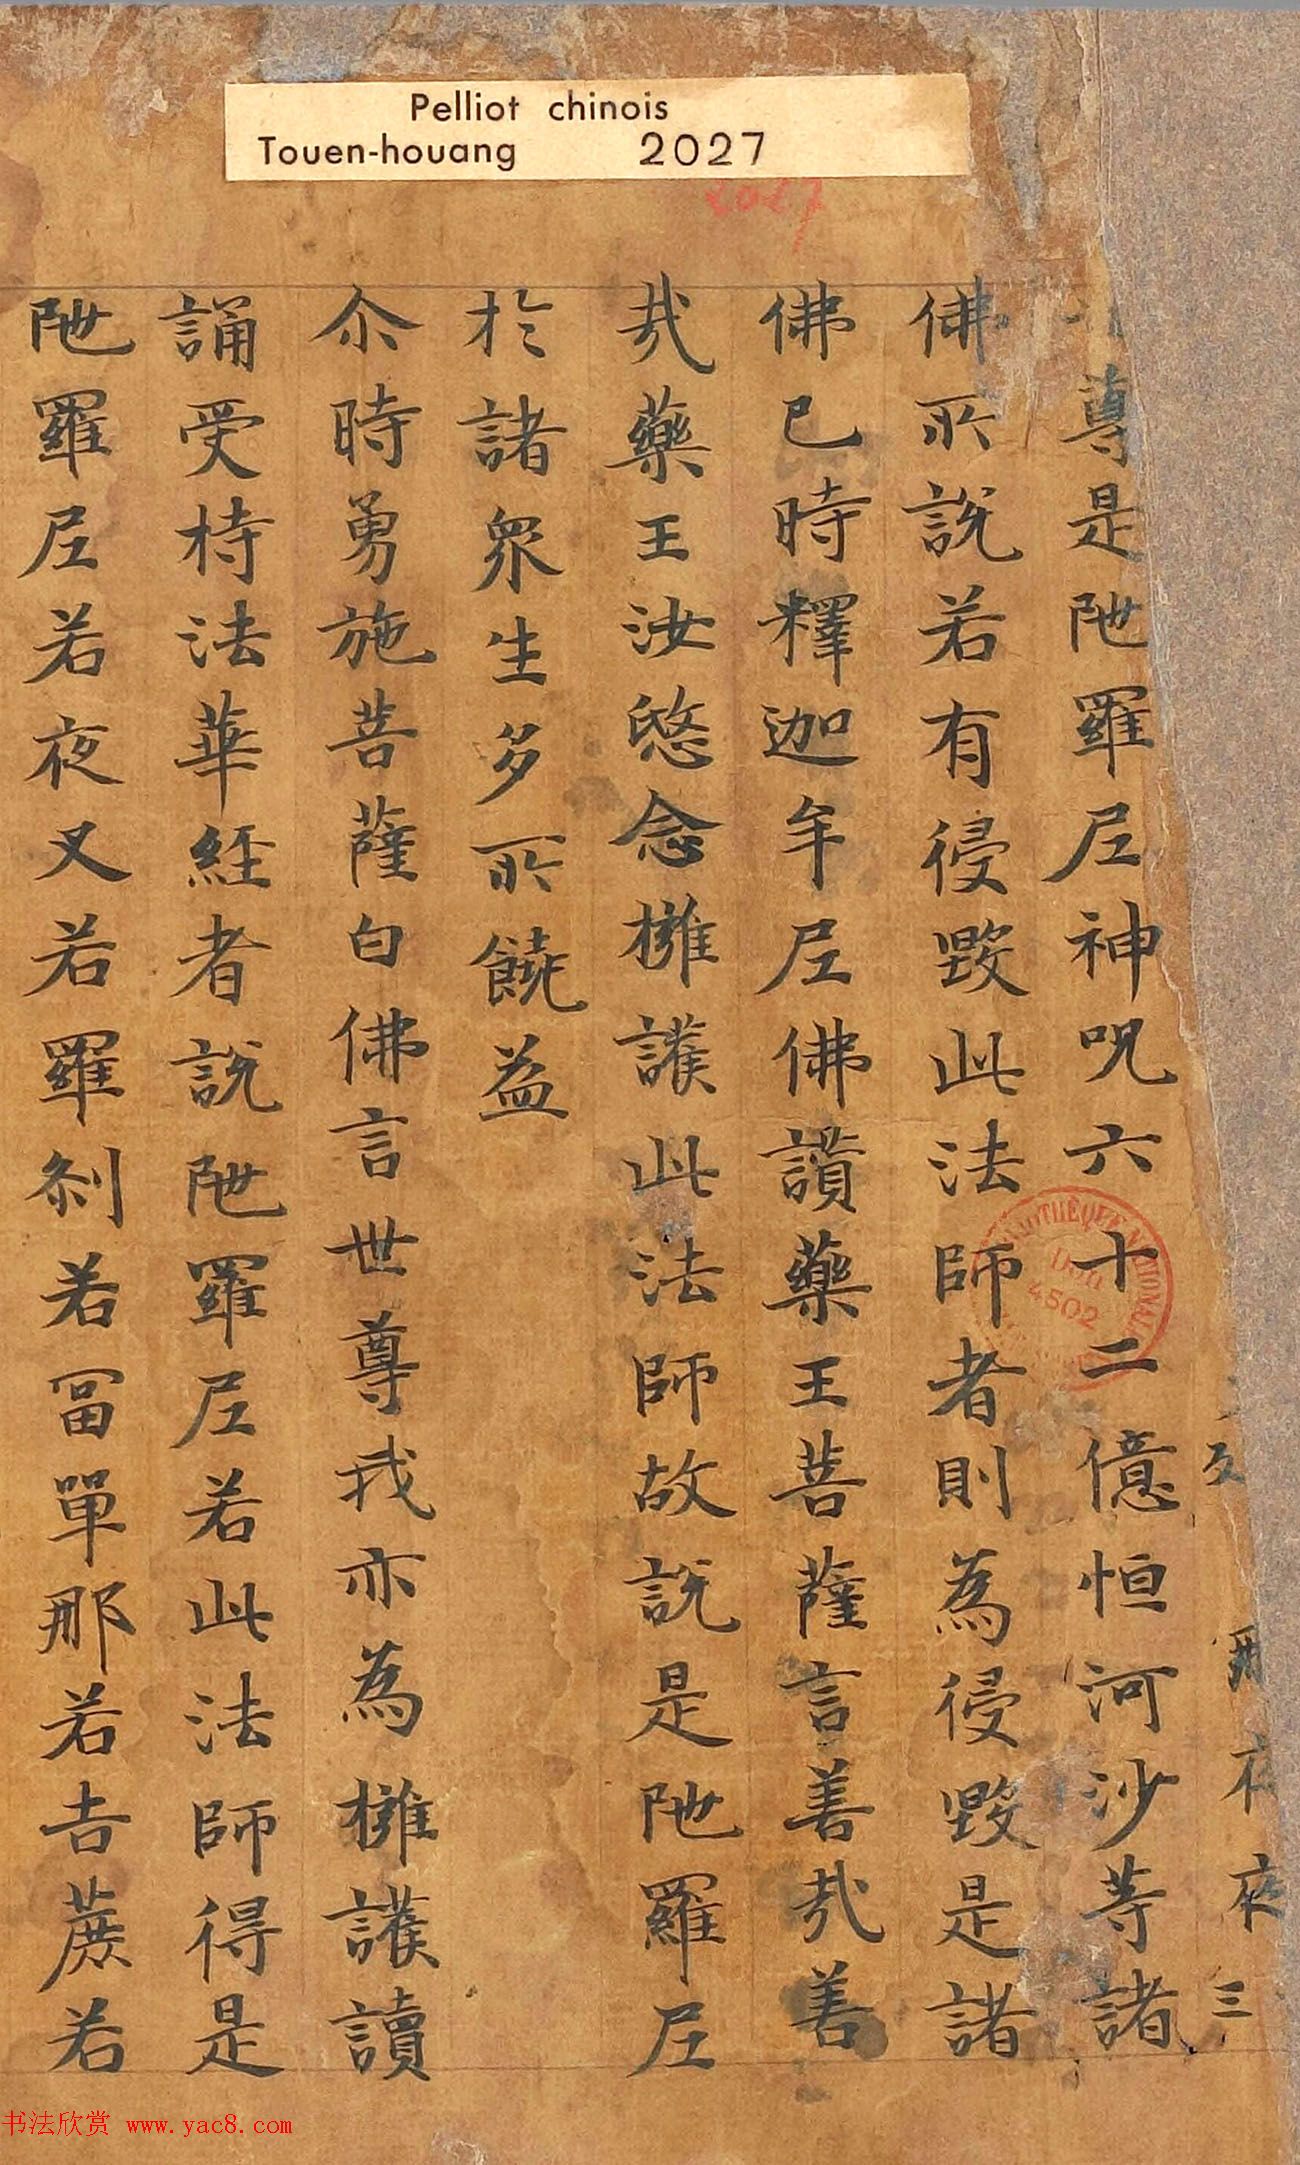 Pelliot chinois
Touen-houang 2027
2027
尊是陁羅尼神呪六十二億恒河沙等諸
佛所說若有侵毀此法師者則為侵毀是諸
佛已時釋迦牟尼佛讚藥王菩薩言善哉善
哉藥王汝愍念擁護此法師故說是陁羅尼
於諸眾生多所饒益
尒時勇施菩薩白佛言世尊我亦為擁護讀
誦受持法華經者說陁羅尼若此法師得是
陁羅尼若夜叉若羅剎若富單那若吉蔗若
4502
书法欣赏 www.yac8.com